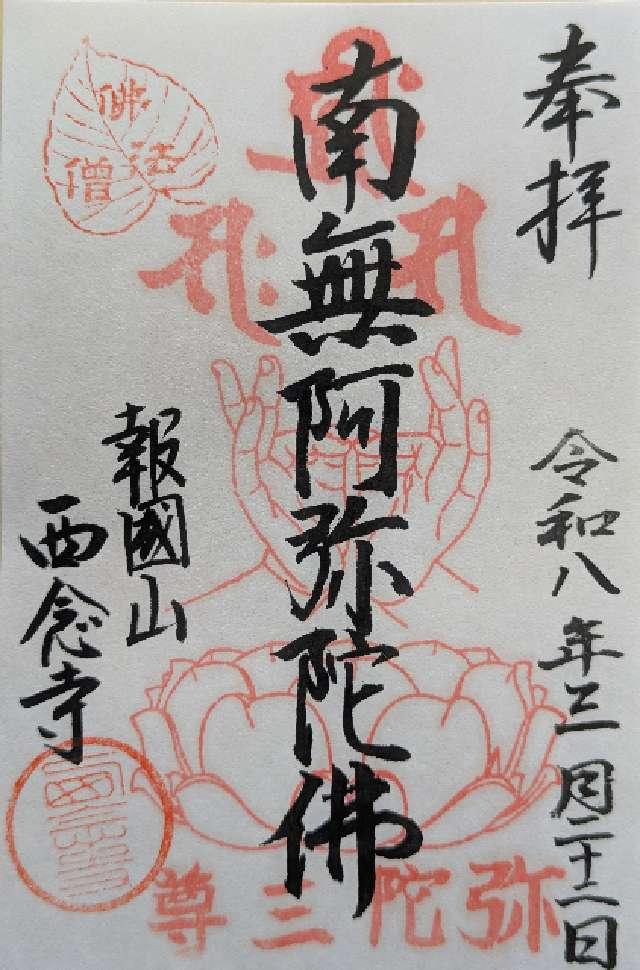 奉拝
令和八年三月二十二日
南無阿弥陀佛
報國山
西念寺
佛法僧
弥陀三尊